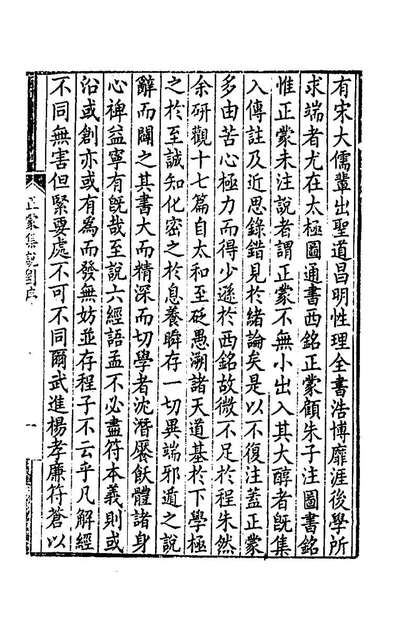 有宋大儒輩出聖道昌明性理全書浩博靡涯後學所
求端者尤在太極圖通書西銘正蒙顧朱子注圖書銘
惟正蒙未注說者謂正蒙不無小出入其大醇者旣集
入傳註及近思錄錯見於緒論矣是以不復注蓋正蒙
多由苦心極力而得少遜於西銘故微不足於程朱然
余研觀十七篇自太和至砭愚溯諸天道基於下學極
之於至誠知化密之於息養瞬存一切異端邪遁之說
辭而闢之其書大而精深而切學者沈潛饜飫體諸身
心裨益寧有旣哉至說六經語孟不必盡符本義則或
沿或創亦或有為而發無妨並存程子不云乎凡解經
不同無害但緊要處不可不同爾武進楊孝廉符蒼以
正蒙集說劉序
一